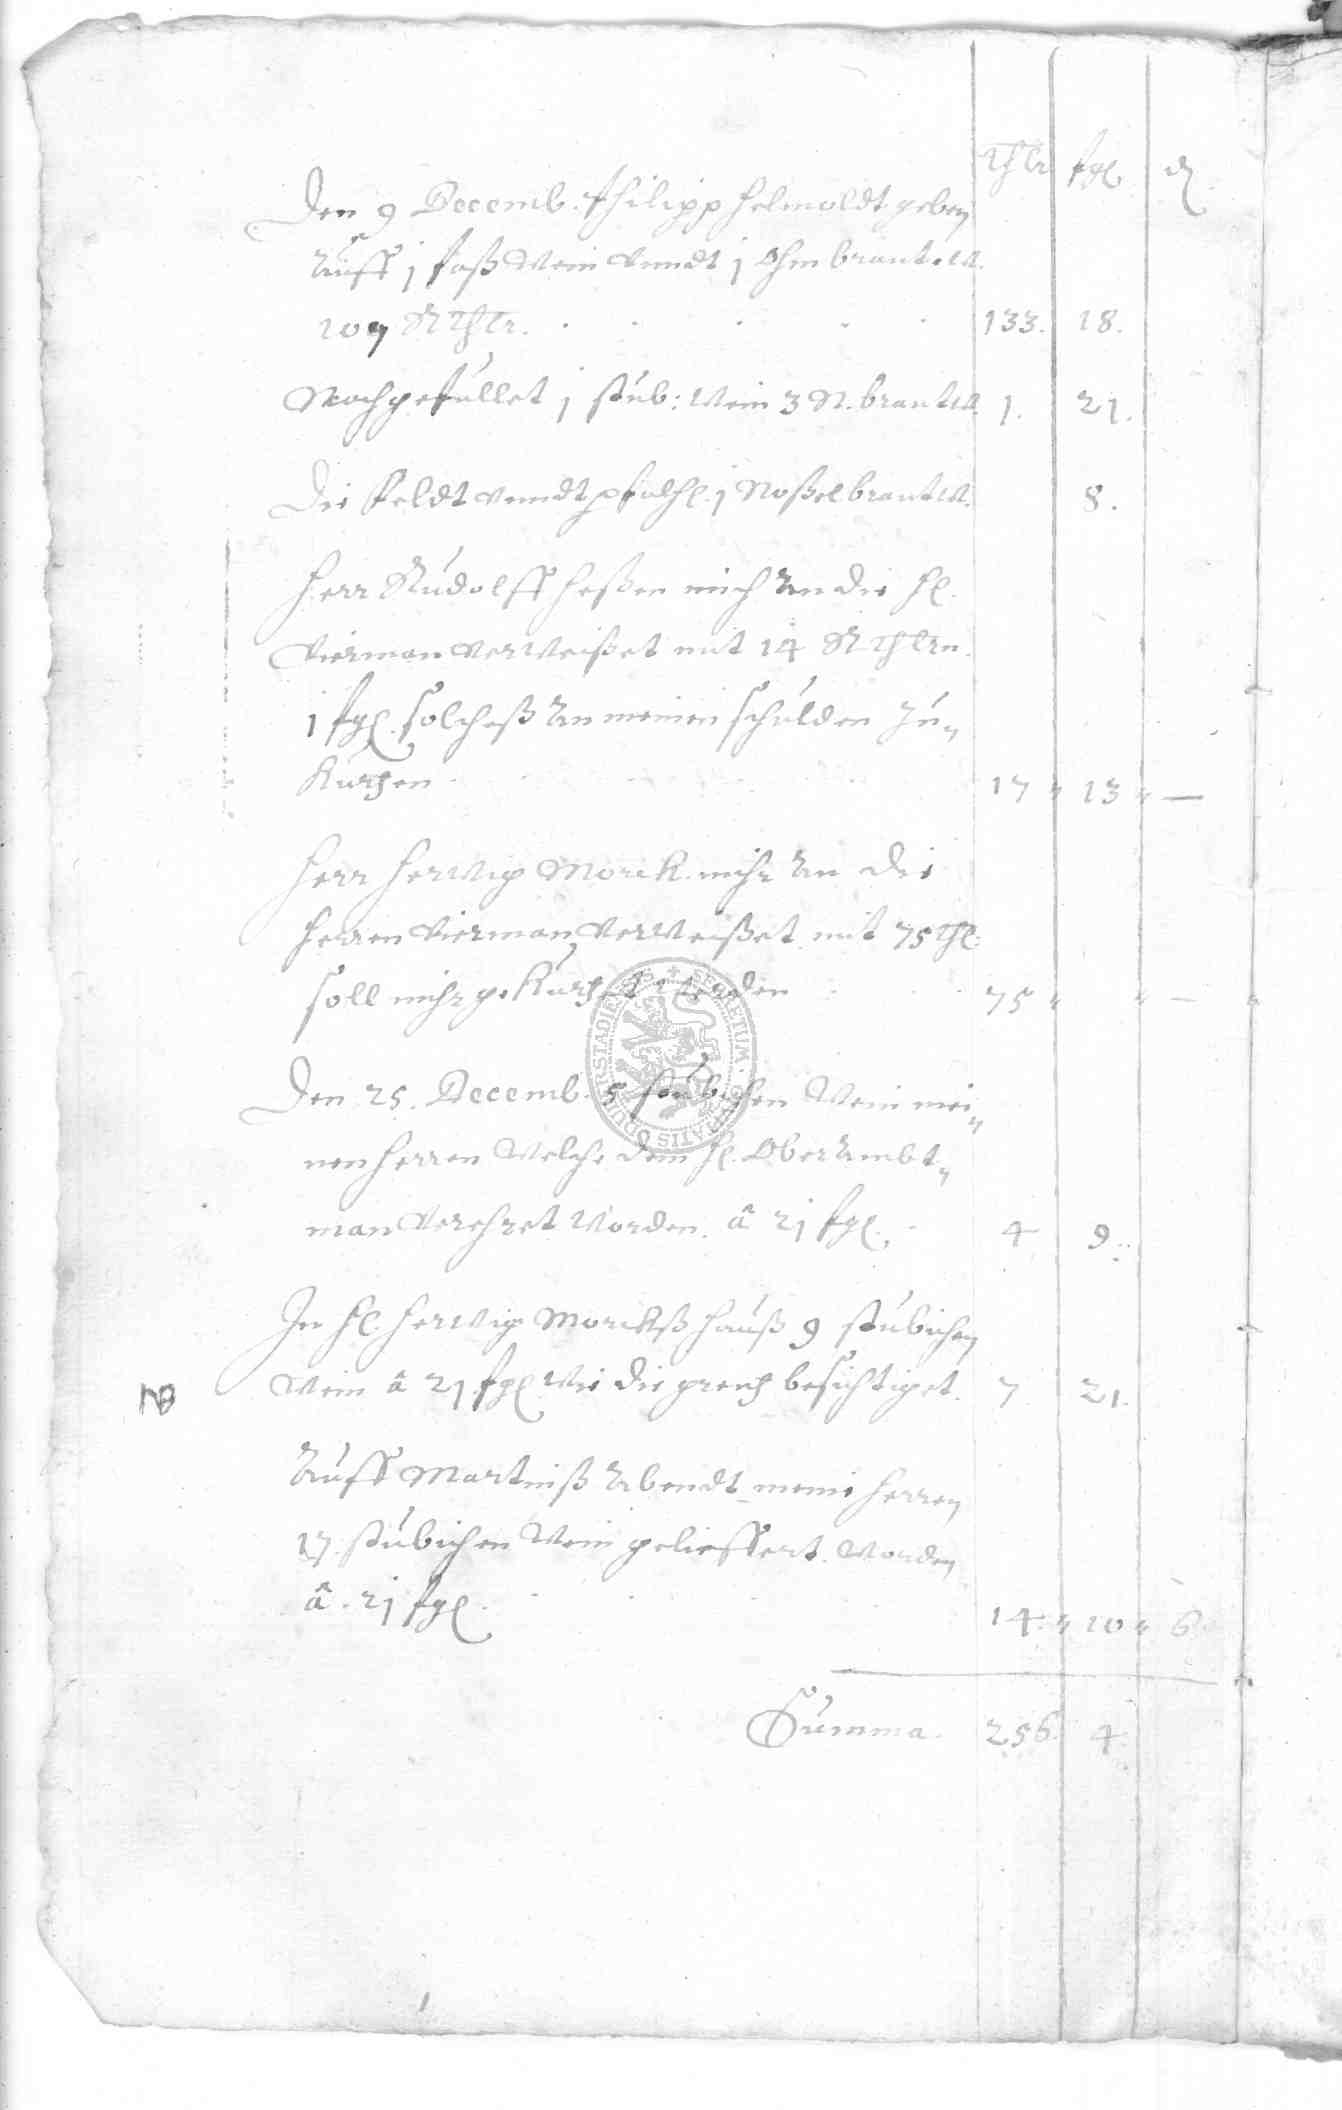 Thlr fgl. ₰
Den 9 Decemb. Philipp Helmoldt geben
Auff j faß Wein vnndt j Ohm brantw.
109 RThlr. 133. 18.
Nachgefullet j stub: Wein 3 N. brantw. 1. 21.
Die feldt vnndt j Noßel brantw. 8.
Herr Rudolff Heßen mich an die Hl.
Vierman verweißet mit 14 RThlrn.
j fgl. solcheß an meinen schulden zu=
kurtzen 17 13 —
Herr Herwig Morck mihr an die
Herren Vierman verweißet mit 75 Thl:
soll mihr gekurtzet werden 75 —
Den 25. Decemb. 5 stubichen Wein mei=
nen Herren Welche dem Hl. Oberambt=
man verehret worden. â 21 fgl. 4 9.
In Hl. Herwig Morckß Hauß 9 stubichen
NB Wein â 21 fgl Wie die grentz besichtiget. 7 21.
Auff Martniß Abendt meine Herren
17 stubichen Wein gelieffert worden
â. 21 fgl. 14. 10 6.
Summa. 256. 4.
SECRETUM CIVITATIS DUDERSTADIENSIS